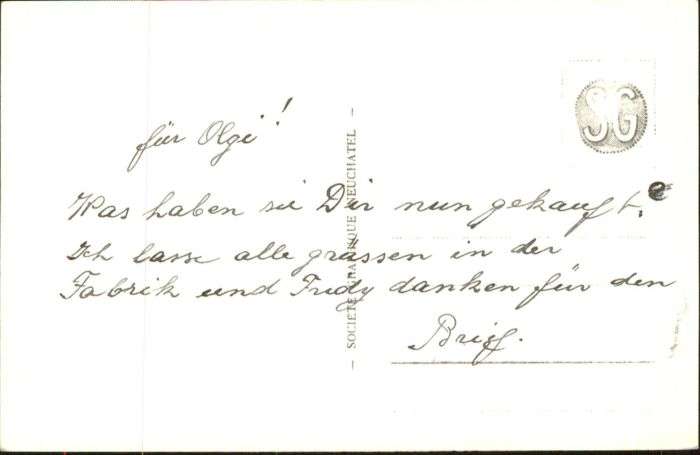 SG
für Olgi!
Was haben sie Dir nun gekauft.
Ich lasse alle grüssen in der
Fabrik und Fridy danken für den
Brief.
— SOCIETE GRAPHIQUE NEUCHATEL —